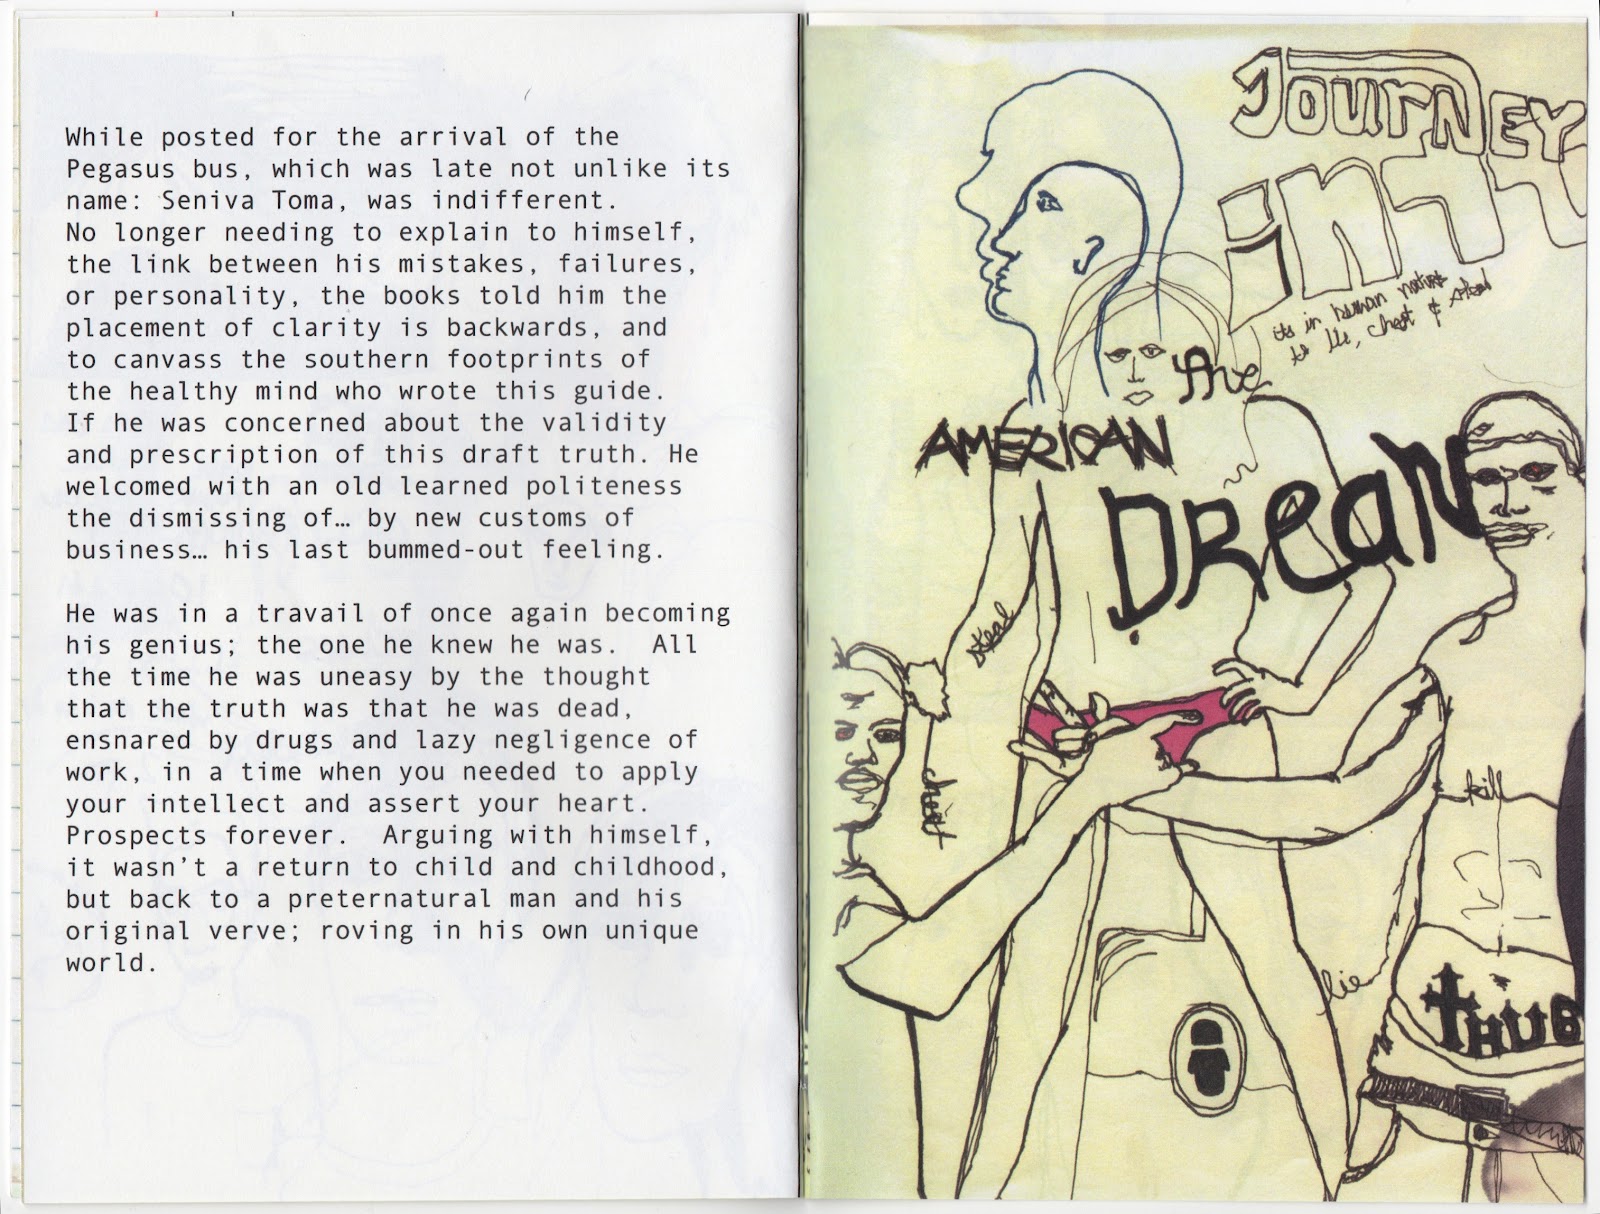 While posted for the arrival of the
Pegasus bus, which was late not unlike its
name: Seniva Toma, was indifferent.
No longer needing to explain to himself,
the link between his mistakes, failures,
or personality, the books told him the
placement of clarity is backwards, and
to canvass the southern footprints of
the healthy mind who wrote this guide.
If he was concerned about the validity
and prescription of this draft truth. He
welcomed with an old learned politeness
the dismissing of… by new customs of
business… his last bummed-out feeling.

He was in a travail of once again becoming
his genius; the one he knew he was.  All
the time he was uneasy by the thought
that the truth was that he was dead,
ensnared by drugs and lazy negligence of
work, in a time when you needed to apply
your intellect and assert your heart.
Prospects forever.  Arguing with himself,
it wasn't a return to child and childhood,
but back to a preternatural man and his
original verve; roving in his own unique
world.

JOURNEY
inTO
its in human nature
to lie, cheat & steal
The
AMERICAN
DReaM
steal
cheat
kill
lie
THUG